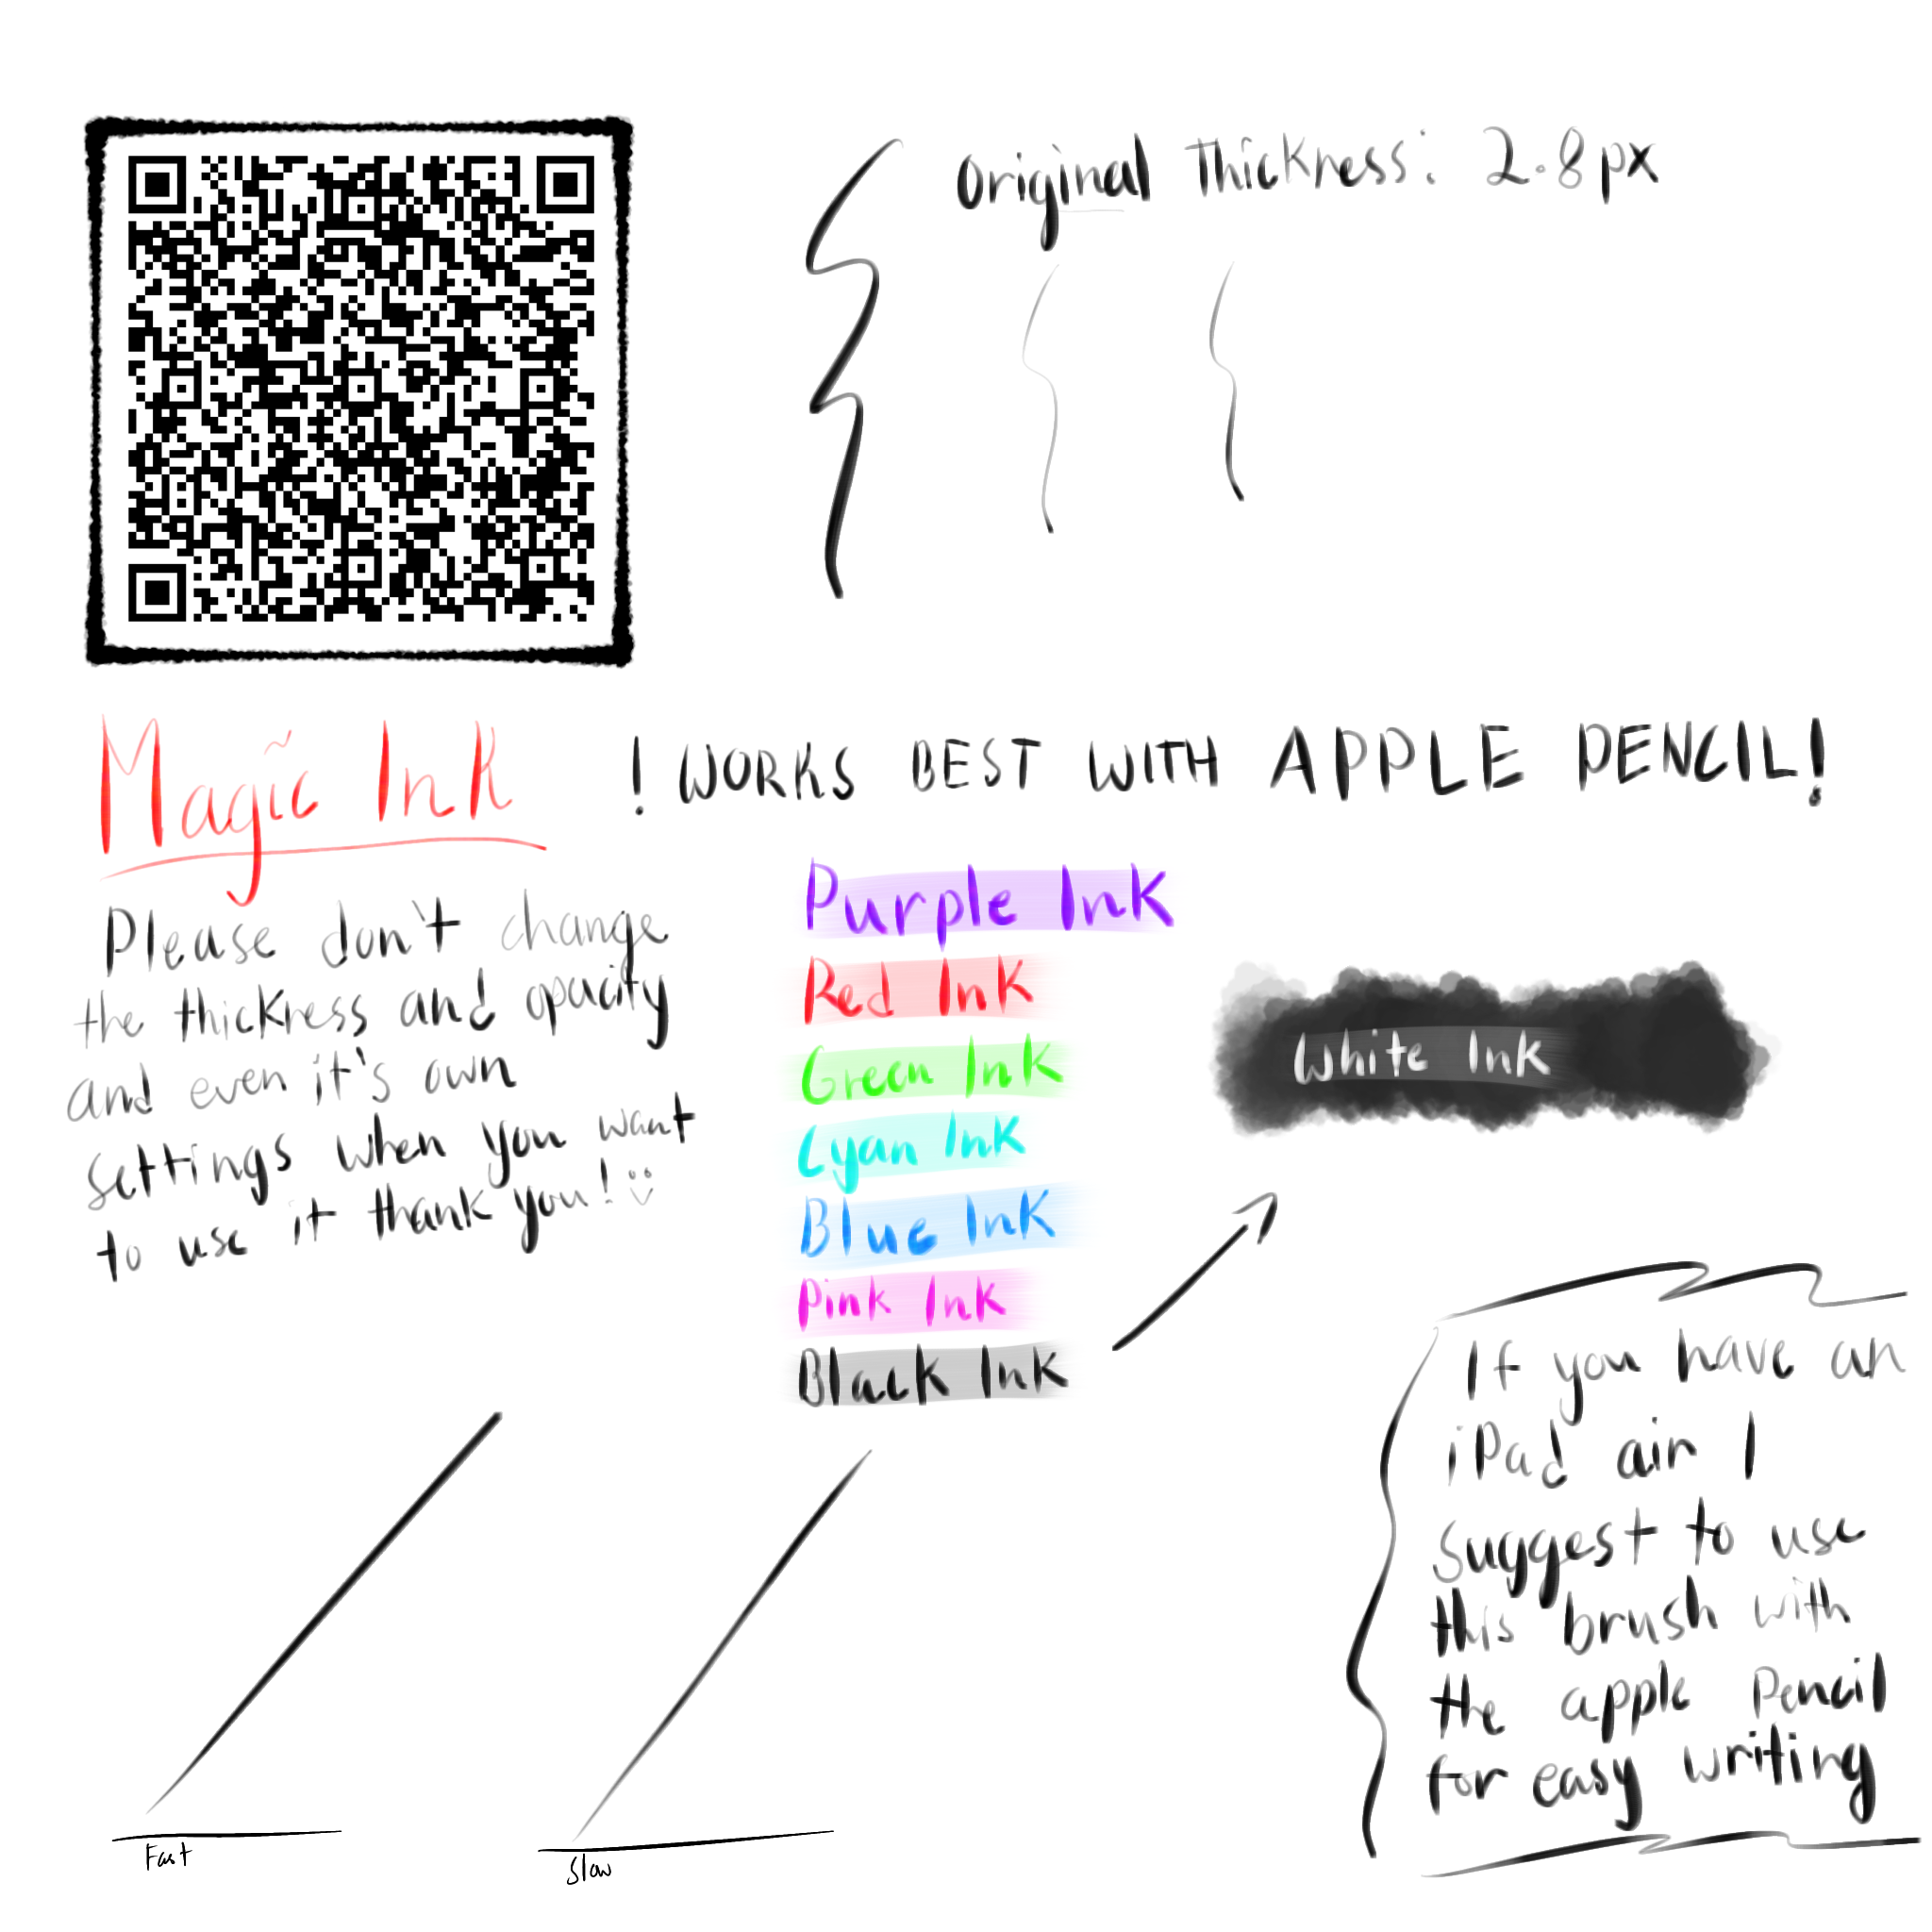 Original Thickness: 2.8px
Magic Ink
! WORKS BEST WITH APPLE PENCIL!
Please don't change
the thickness and opacity
and even it's own
settings when you want
to use it thank you! :)
Purple Ink
Red Ink
Green Ink
Cyan Ink
Blue Ink
Pink Ink
Black Ink
White Ink
If you have an
iPad air I
suggest to use
this brush with
the apple pencil
for easy writing
Fast
Slow